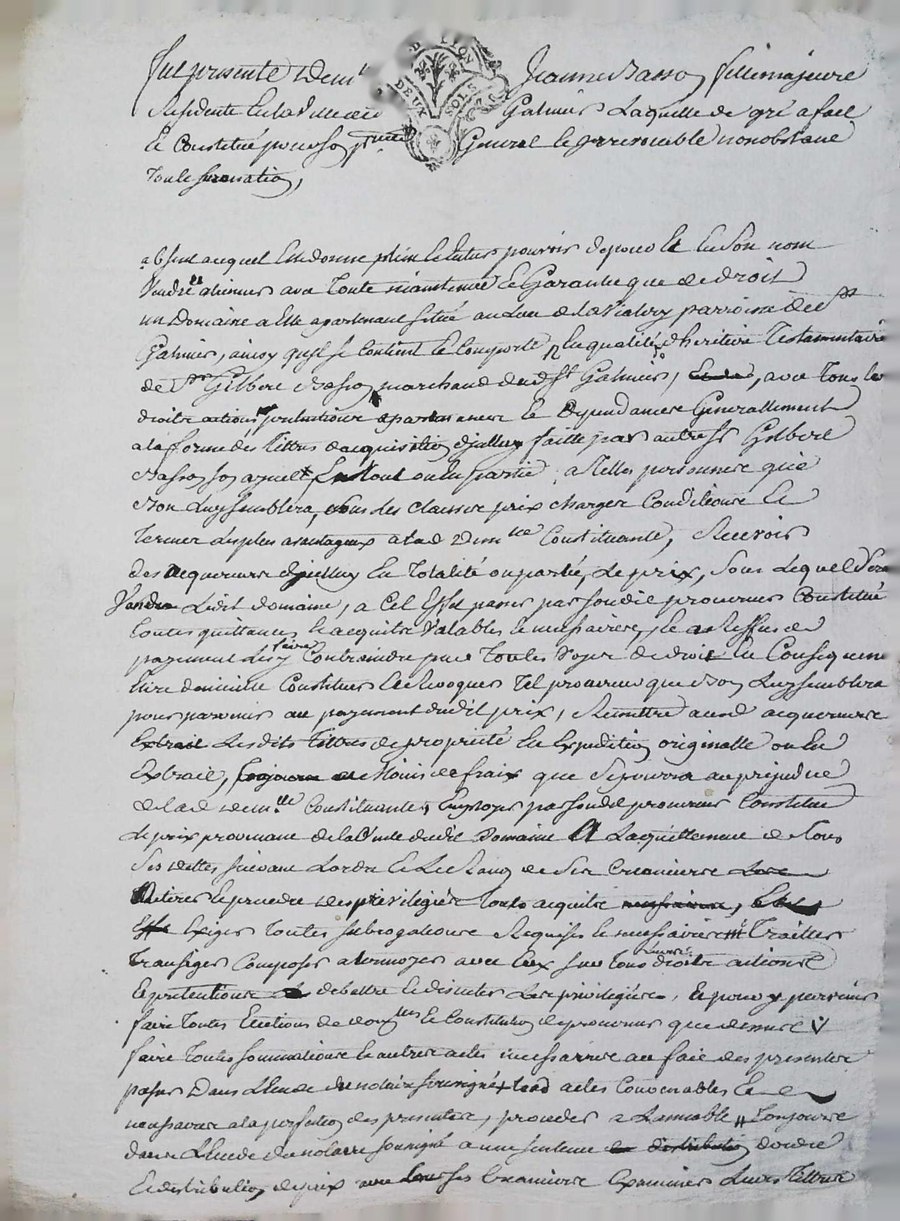 fut presente Dem.lle Jeanne Basson fille majeure
Residente en la ville de Galmier Laquelle de gré a fait
et Constitué pour son General et irrevocable nonobstant
toute
DEUX SOLS
auquel Elle donne plein et entier pouvoir de pour et en son nom
vendre aliener avec Toute maintenue et Garantie que de droit
un Domaine a Elle apartenant situé au Lieu de la Viallery parroisse de St
Galmier, ainsy qu'il se Contient et Comporte, en qualité d'heritiere Testamentaire
de Sr Gilbert Basson marchand dud. St Galmier, avec Tous les
droits actions pretentions apartenances et Dependances Generallement
a la forme des Titres d'acquisition d'jcelluy faitte par autre Sr Gilbert
Basson son ayeul En tout ou En partie, a telles personnes que
Bon Luy semblera, sous les clauses prix charges Conditions Et
Termes Les plus avantageux a lad. Dem.lle Constituante, Recevoir
des acquereurs d'jcelluy En Totalité ou partie, Le prix, sous Lequel sera
Vendu Ledit Domaine, a Cet Effet passer par sondit procureur Constitué
toutes quittances et acquits Valables et necessaires, et au Reffus de
payement Les y faire Contraindre par Toutes voyes de droit En Consequence
Elire domicille Constituer et Revoquer Tel procureur que Bon Luy semblera
pour parvenir au payement dudit prix, Remettre auxd. acquereurs
Extrait Lesdits Tittres de propriété En Expedition originalle ou En
Extrait, Moins de fraix que se pourra au prejudice
de lad. dem.lle Constituante, Employer par sondit procureur Constitué
Le prix provenant de la Vente dudit Domaine A Lacquittement de Tous
ses dettes suivant Lordre Et Le Rang de ses Creanciers
Retirer et prendre des privilegiés Tous acquits necessaires,
Exiger Toutes subrogations Requises et necessaires Traitter
Transiger Composer atermoyer avec Eux sur tous Leurs droits actions
et pretentions debattre et discuter Les privilegiés, Et pour y parvenir
faire Toutes Elections de et Constitution de procureur que
faire Toutes sommations et autres actes necessaires au fait des presentes
passer Dans LEtude du notaire soussigné actes Convenables Et
necessaires a la perfection des presentes, proceder a Lamiable Toujours
dans LEtude du notaire soussigné a une sentence distribution dordre
Et distribution de prix ses Creanciers Examiner Leurs Tittres